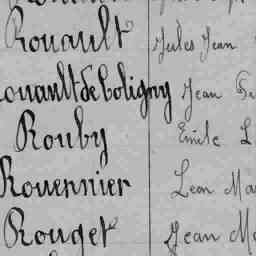 Rouault Jules Jean
Rouault de Coligny Jean
Rouby Emile L
Rouennier Leon Ma
Rouget Jean M